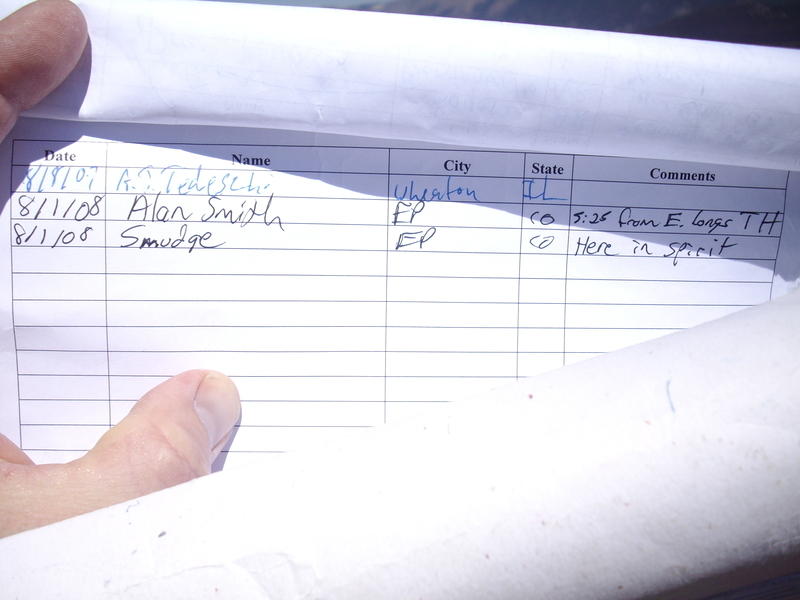 Date Name City State Comments
8/8/07 A.J. Tedeschi Wheaton IL
8/1/08 Alan Smith EP CO 5:25 from E. Longs TH
8/1/08 Smudge EP CO Here in spirit